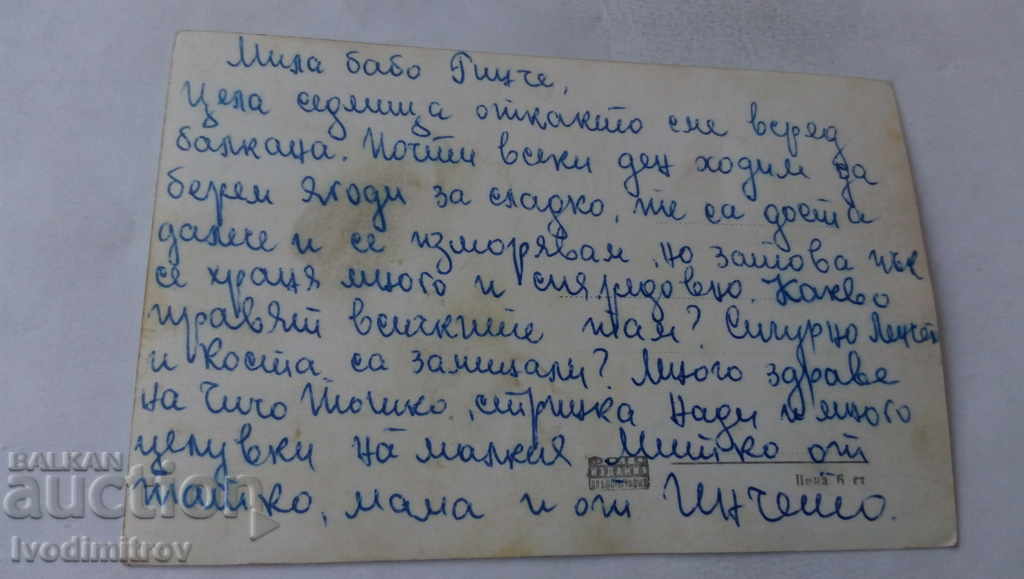 Мила бабо Гинче,
Цела седмица откакто сме всред
балкана. Почти всеки ден ходим да
берем ягоди за сладко, те са доста
далече и се изморявам, но затова пък
се храня много и спя редовно. Какво
правят всичките там? Сигурно
и Коста са заминали? Много здраве
на Чичо Тошко, стринка Нади и много
целувки на малкия Митко от
татко, мама и от Гинчето.
ИЗДАНИЯ
Цена 6 ст
BALKAN
auction
Ivodimitrov